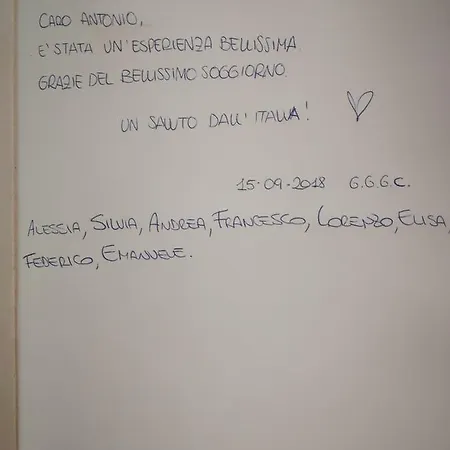 CARO ANTONIO,
E' STATA UN'ESPERIENZA BELLISSIMA
GRAZIE DEL BELLISSIMO SOGGIORNO.
UN SALUTO DALL'ITALIA!
15-09-2018 G.G.G.C.
ALESSIA, SILVIA, ANDREA, FRANCESCO, LORENZO, ELISA,
FEDERICO, EMANUELE.